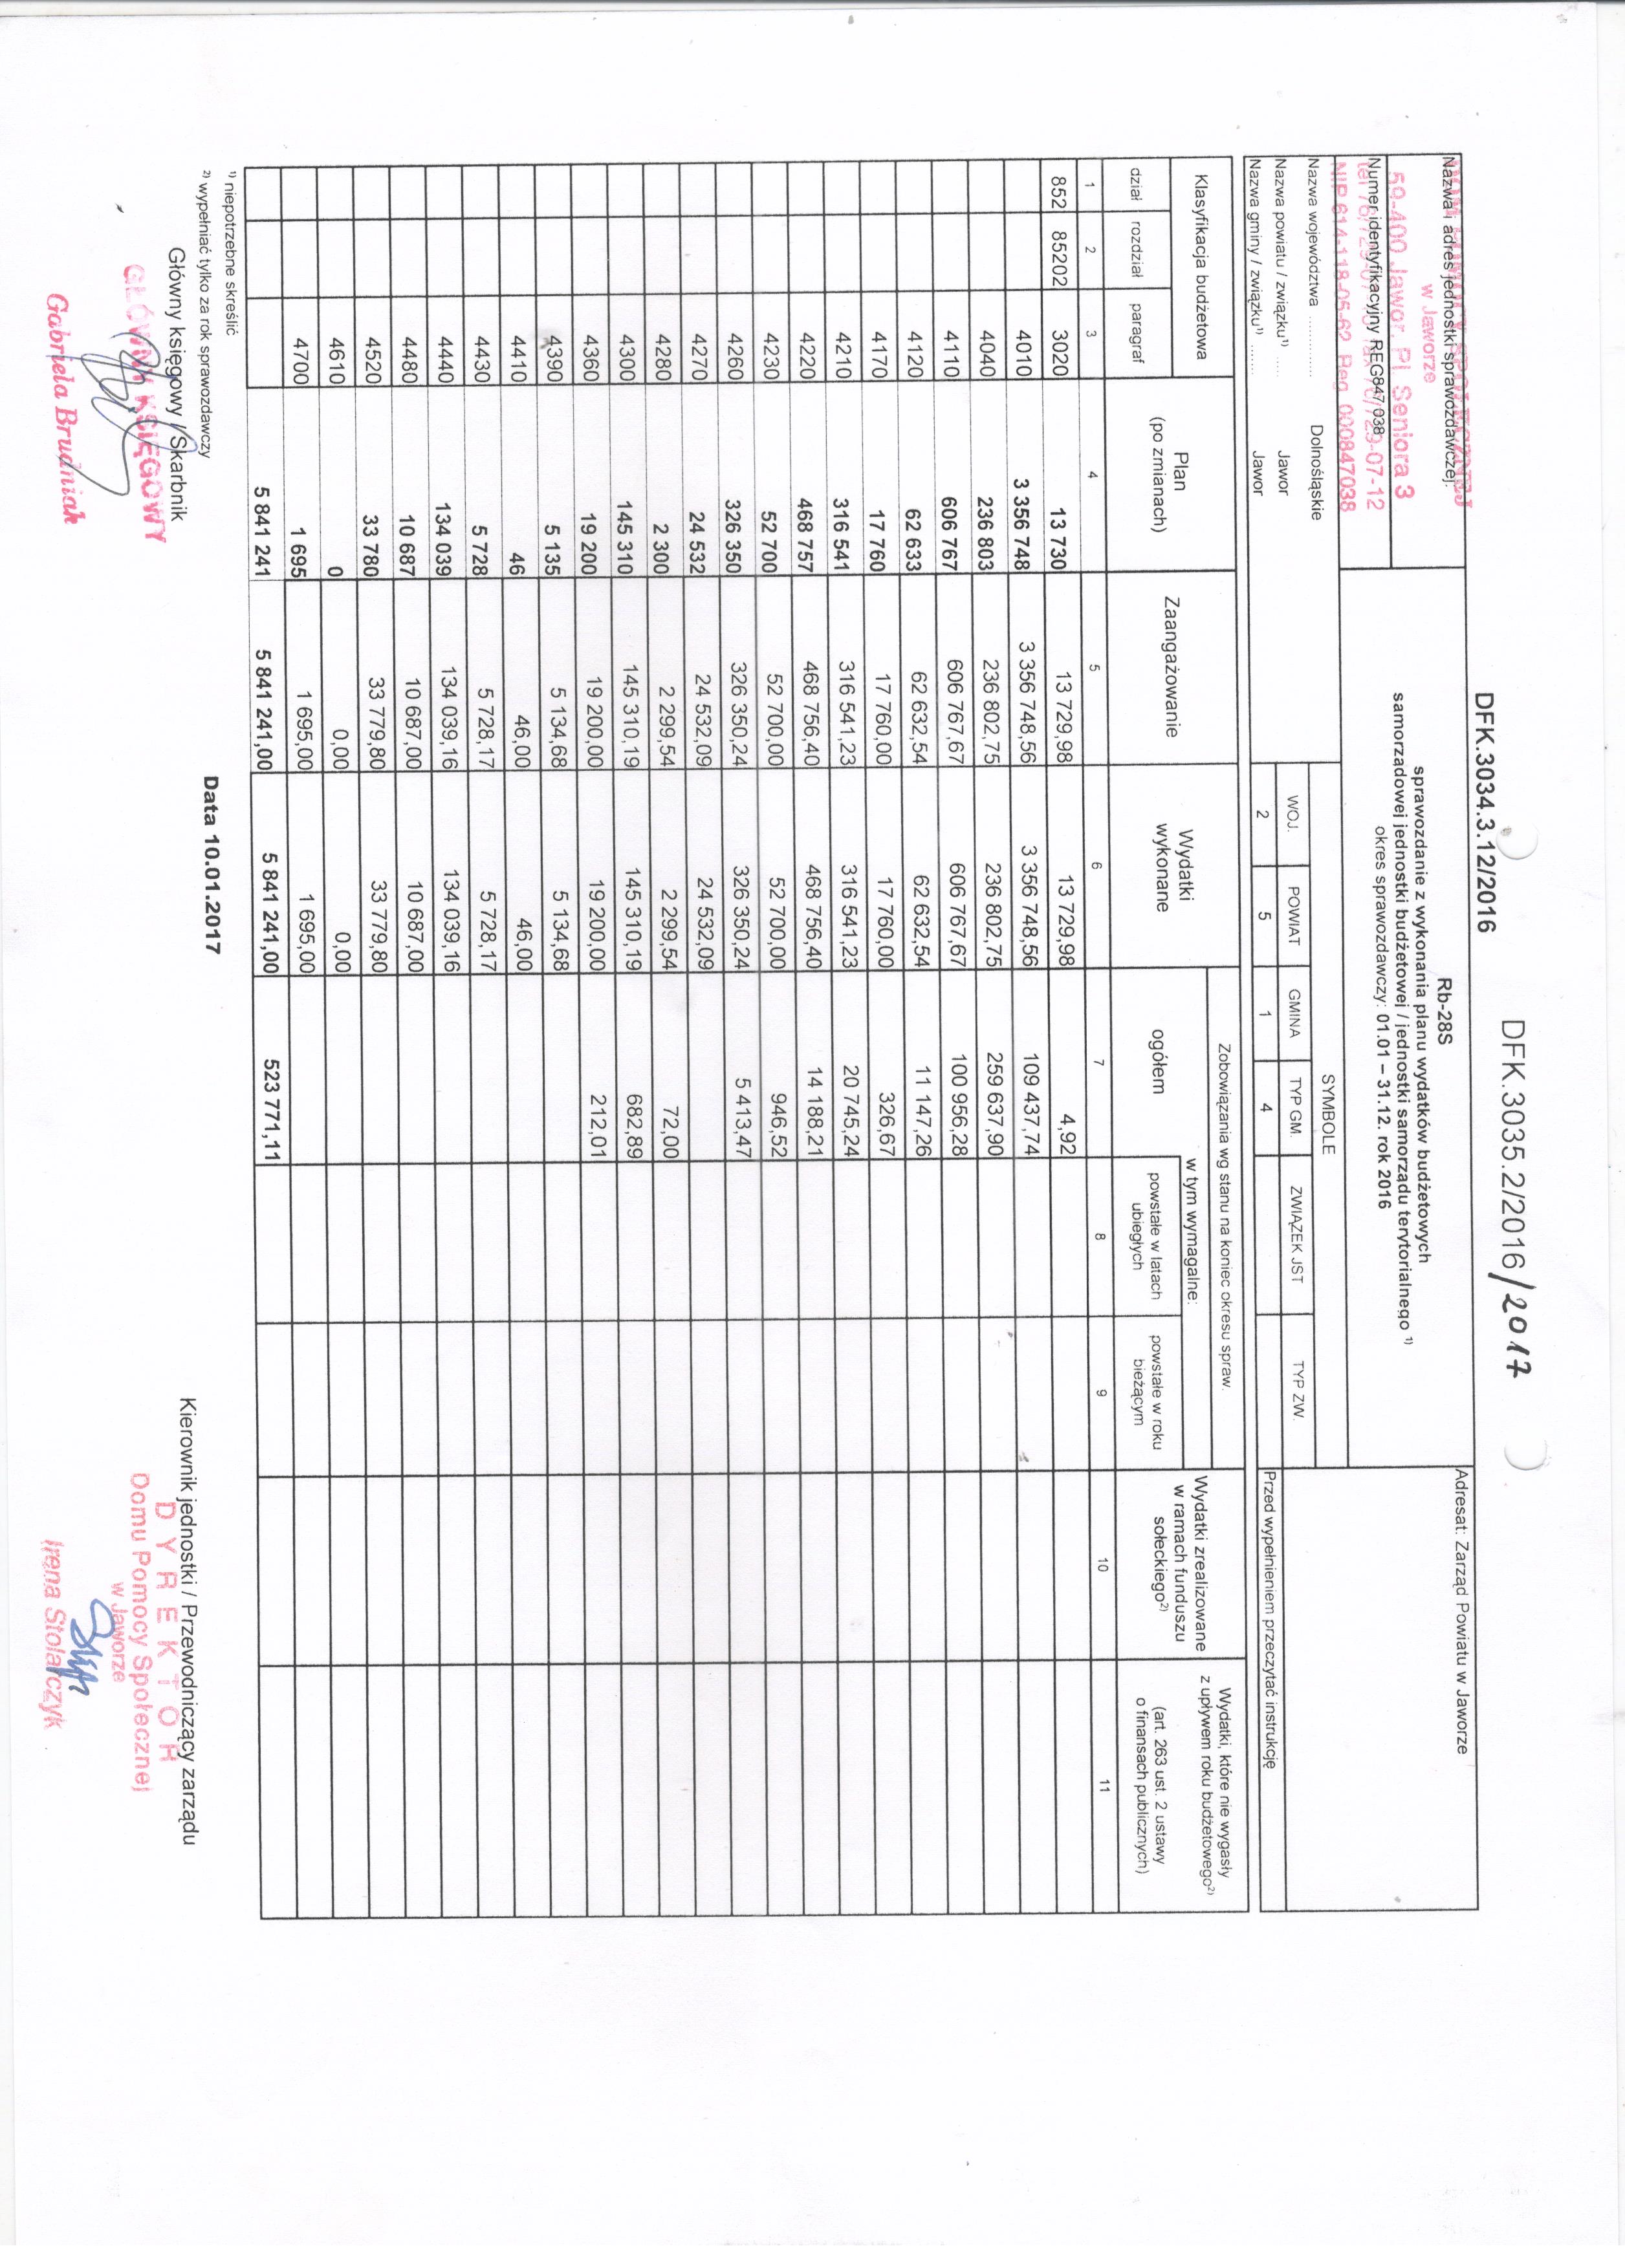 DFK.3035.2/2016/2017
DFK.3034.3.12/2016
Nazwa i adres jednostki sprawozdawczej:
w Jaworze
59-400 Jawor, Pl. Seniora 3
Numer identyfikacyjny REG847038
NIP 614-118-05-62 Reg. 000847038
Rb-28S
sprawozdanie z wykonania planu wydatków budżetowych
samorządowej jednostki budżetowej / jednostki samorządu terytorialnego ¹⁾
okres sprawozdawczy: 01.01 – 31.12. rok 2016
Adresat: Zarząd Powiatu w Jaworze
Nazwa województwa .............. Dolnośląskie
Nazwa powiatu / związku¹⁾ ..... Jawor
Nazwa gminy / związku¹⁾ ....... Jawor
SYMBOLE
WOJ. POWIAT GMINA TYP GM. ZWIĄZEK JST TYP ZW.
2 5 1 4
Przed wypełnieniem przeczytać instrukcję
Klasyfikacja budżetowa
dział rozdział paragraf
Plan
(po zmianach)
Zaangażowanie
Wydatki
wykonane
Zobowiązania wg stanu na koniec okresu spraw.
ogółem
w tym wymagalne:
powstałe w latach
ubiegłych
powstałe w roku
bieżącym
Wydatki zrealizowane
w ramach funduszu
sołeckiego²⁾
Wydatki, które nie wygasły
z upływem roku budżetowego²⁾
(art. 263 ust. 2 ustawy
o finansach publicznych)
1 2 3 4 5 6 7 8 9 10 11
852 85202 3020 13 730 13 729,98 13 729,98 4,92
4010 3 356 748 3 356 748,56 3 356 748,56 109 437,74
4040 236 803 236 802,75 236 802,75 259 637,90
4110 606 767 606 767,67 606 767,67 100 956,28
4120 62 633 62 632,54 62 632,54 11 147,26
4170 17 760 17 760,00 17 760,00 326,67
4210 316 541 316 541,23 316 541,23 20 745,24
4220 468 757 468 756,40 468 756,40 14 188,21
4230 52 700 52 700,00 52 700,00 946,52
4260 326 350 326 350,24 326 350,24 5 413,47
4270 24 532 24 532,09 24 532,09
4280 2 300 2 299,54 2 299,54 72,00
4300 145 310 145 310,19 145 310,19 682,89
4360 19 200 19 200,00 19 200,00 212,01
4390 5 135 5 134,68 5 134,68
4410 46 46,00 46,00
4430 5 728 5 728,17 5 728,17
4440 134 039 134 039,16 134 039,16
4480 10 687 10 687,00 10 687,00
4520 33 780 33 779,80 33 779,80
4610 0 0,00 0,00
4700 1 695 1 695,00 1 695,00
5 841 241 5 841 241,00 5 841 241,00 523 771,11
¹⁾ niepotrzebne skreślić
²⁾ wypełniać tylko za rok sprawozdawczy
Data 10.01.2017
Główny księgowy / Skarbnik
GŁÓWNY KSIĘGOWY
Gabriela Brudniak
Kierownik jednostki / Przewodniczący zarządu
DYREKTOR
Domu Pomocy Społecznej
w Jaworze
Irena Stolarczyk